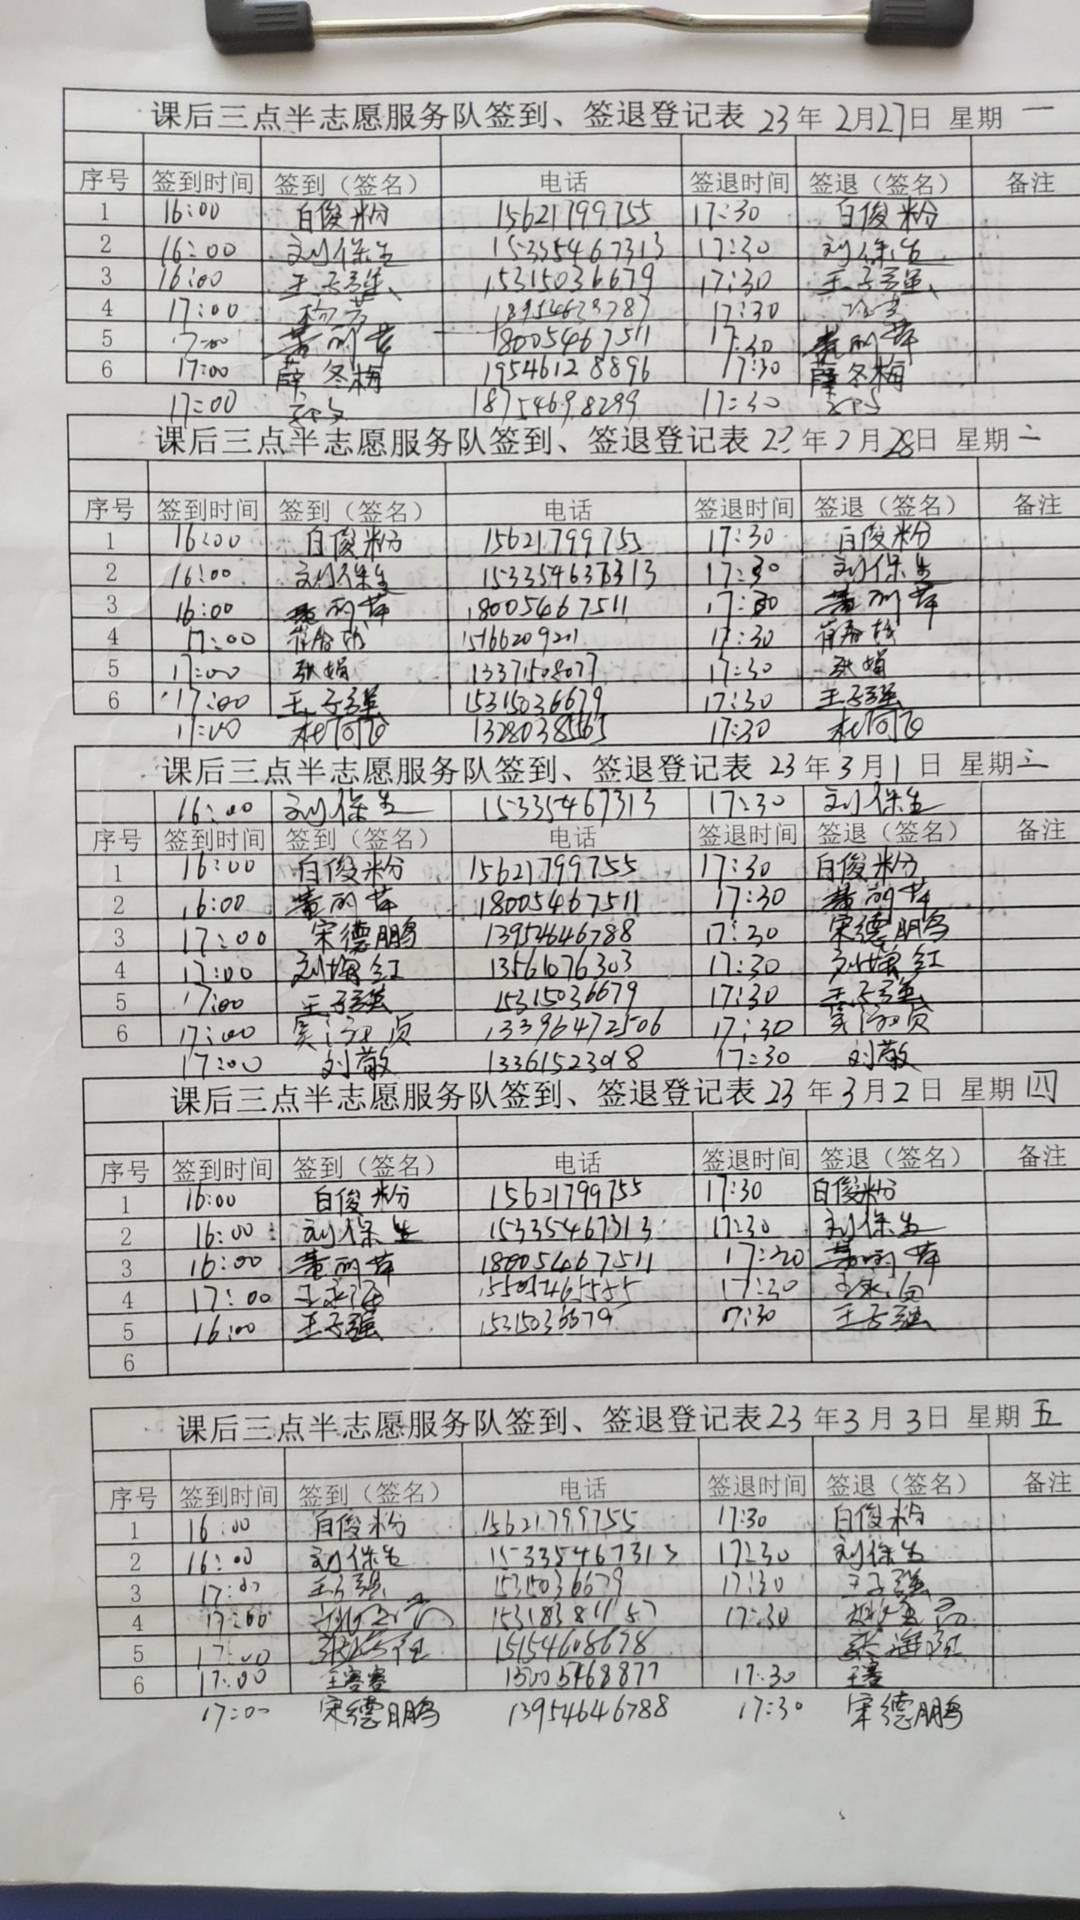 课后三点半志愿服务队签到、签退登记表 23年 2月27日 星期 一
序号 签到时间 签到（签名） 电话 签退时间 签退（签名） 备注
1 16:00 白俊粉 15621799755 17:30 白俊粉
2 16:00 刘保生 15335467313 17:30 刘保生
3 16:00 王子强 15315036679 17:30 王子强
4 17:00 杨芳 17:30
5 7:00 黄丽萍 18005467511 17:30 黄丽萍
6 17:00 薛冬梅 19546128896 17:30 薛冬梅
17:00 18754698299 17:30
课后三点半志愿服务队签到、签退登记表 23年 2月28日 星期 二
序号 签到时间 签到（签名） 电话 签退时间 签退（签名） 备注
1 16:00 白俊粉 15621799755 17:30 白俊粉
2 16:00 刘保生 17:30 刘保生
3 16:00 黄丽萍 18005467511 17:30 黄丽萍
4 17:00 15166209201 17:30
5 17:00 张娟 13371508077 17:30 张娟
6 17:00 王子强 15315036679 17:30 王子强
17:00 杜何飞 13280385165 17:30 杜何飞
课后三点半志愿服务队签到、签退登记表 23年 3月 1日 星期 三
16:00 刘保生 15335467313 17:30 刘保生
序号 签到时间 签到（签名） 电话 签退时间 签退（签名） 备注
1 16:00 白俊粉 15621799755 17:30 白俊粉
2 16:00 黄丽萍 18005467511 17:30 黄丽萍
3 17:00 宋德鹏 13954646788 17:30 宋德鹏
4 17:00 刘梅红 13561076303 17:30 刘梅红
5 17:00 王子强 15315036679 17:30 王子强
6 17:00 13396472506 17:30
17:00 刘敬 13361523018 17:30 刘敬
课后三点半志愿服务队签到、签退登记表 23年 3月 2日 星期 四
序号 签到时间 签到（签名） 电话 签退时间 签退（签名） 备注
1 16:00 白俊粉 15621799755 17:30 白俊粉
2 16:00 刘保生 15335467313 17:30 刘保生
3 16:00 黄丽萍 18005467511 17:30 黄丽萍
4 17:00 17:30
5 16:00 王子强 15315036679 7:30 王子强
6
课后三点半志愿服务队签到、签退登记表 23年 3月 3日 星期 五
序号 签到时间 签到（签名） 电话 签退时间 签退（签名） 备注
1 16:00 白俊粉 15621799755 17:30 白俊粉
2 16:00 刘保生 15335467313 17:30 刘保生
3 17:00 王子强 15315036679 17:30 王子强
4 17:00 15318381157 17:30
5 17:00 15154608678
6 17:00 王赛赛 15005468877 17:30 王赛
17:00 宋德鹏 13954646788 17:30 宋德鹏